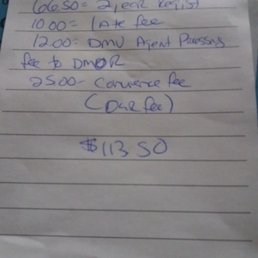 66.50 = 2 year regist
10.00 = late fee
12.00 = DMV Agent Processing
fee to DMOR
25.00 - Convience fee
(Our fee)
$113.50